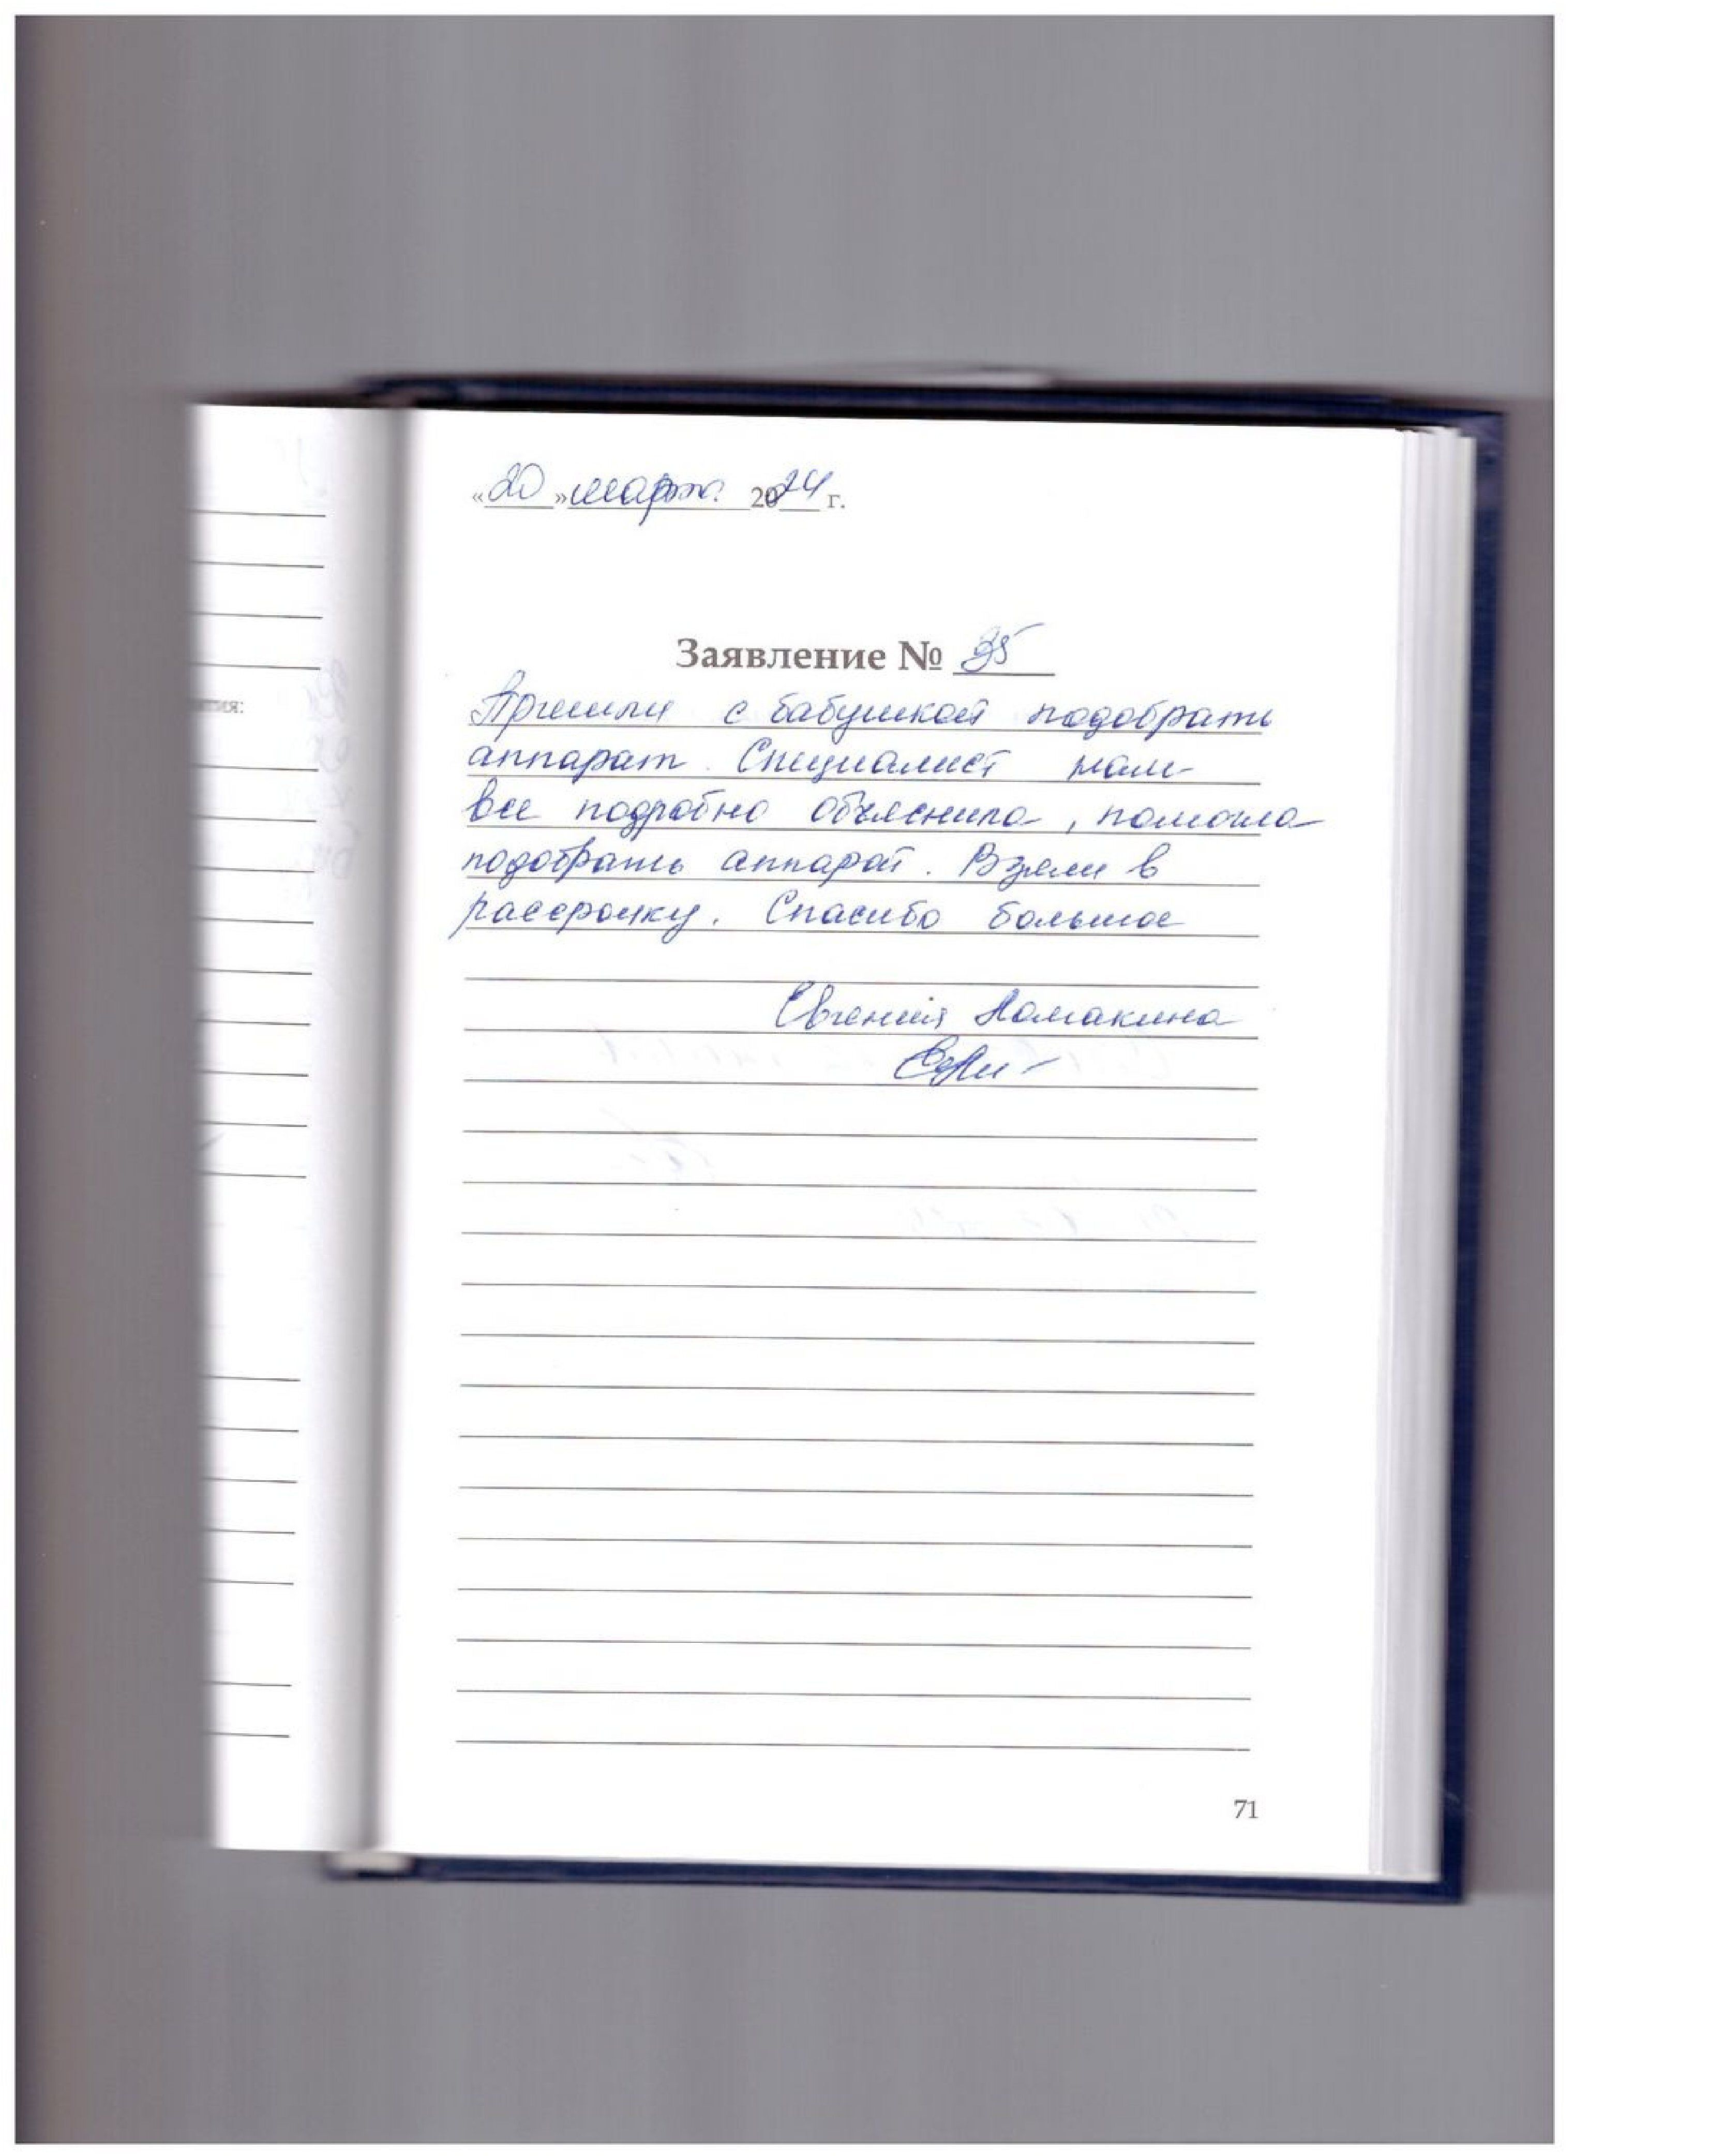 «20» марта 2024 г.
Заявление № 35
Пришли с бабушкой подобрать
аппарат. Специалист нам
все подробно объяснила, помогла
подобрать аппарат. Взяли в
рассрочку. Спасибо большое
Евгения Ломакина
71